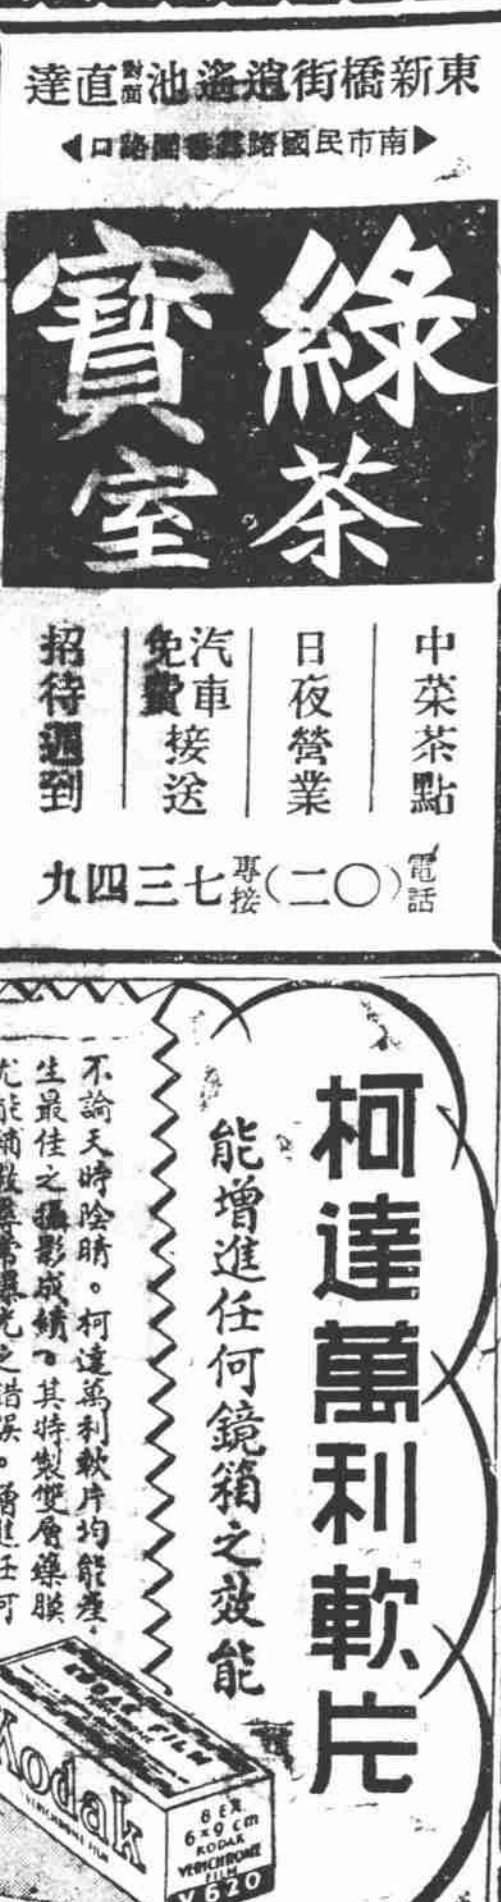 東新橋街逍遙池對面直達
南市民國路舊審國路口
綠寶
茶室
中菜茶點
日夜營業
汽車免費接送
招待週到
電話(〇二)專接七三四九
柯達萬利軟片
能增進任何鏡箱之效能
不論天時陰晴。柯達萬利軟片均能產
生最佳之攝影成績。其特製雙層藥膜
尤能補救尋常曝光之錯誤。增進任何
KODAK FILM
Kodak
VERICHROME FILM
8 EX.
6×9 cm
KODAK
VERICHROME
FILM
V620